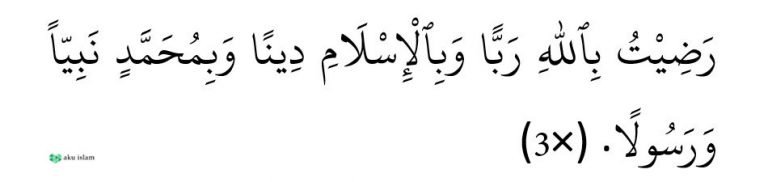 رَضِيْتُ بِٱللهِ رَبًّا وَبِٱلْإِسْلَامِ دِينًا وَبِمُحَمَّدٍ نَبِيّاً
وَرَسُولًا. (×3)
aku islam